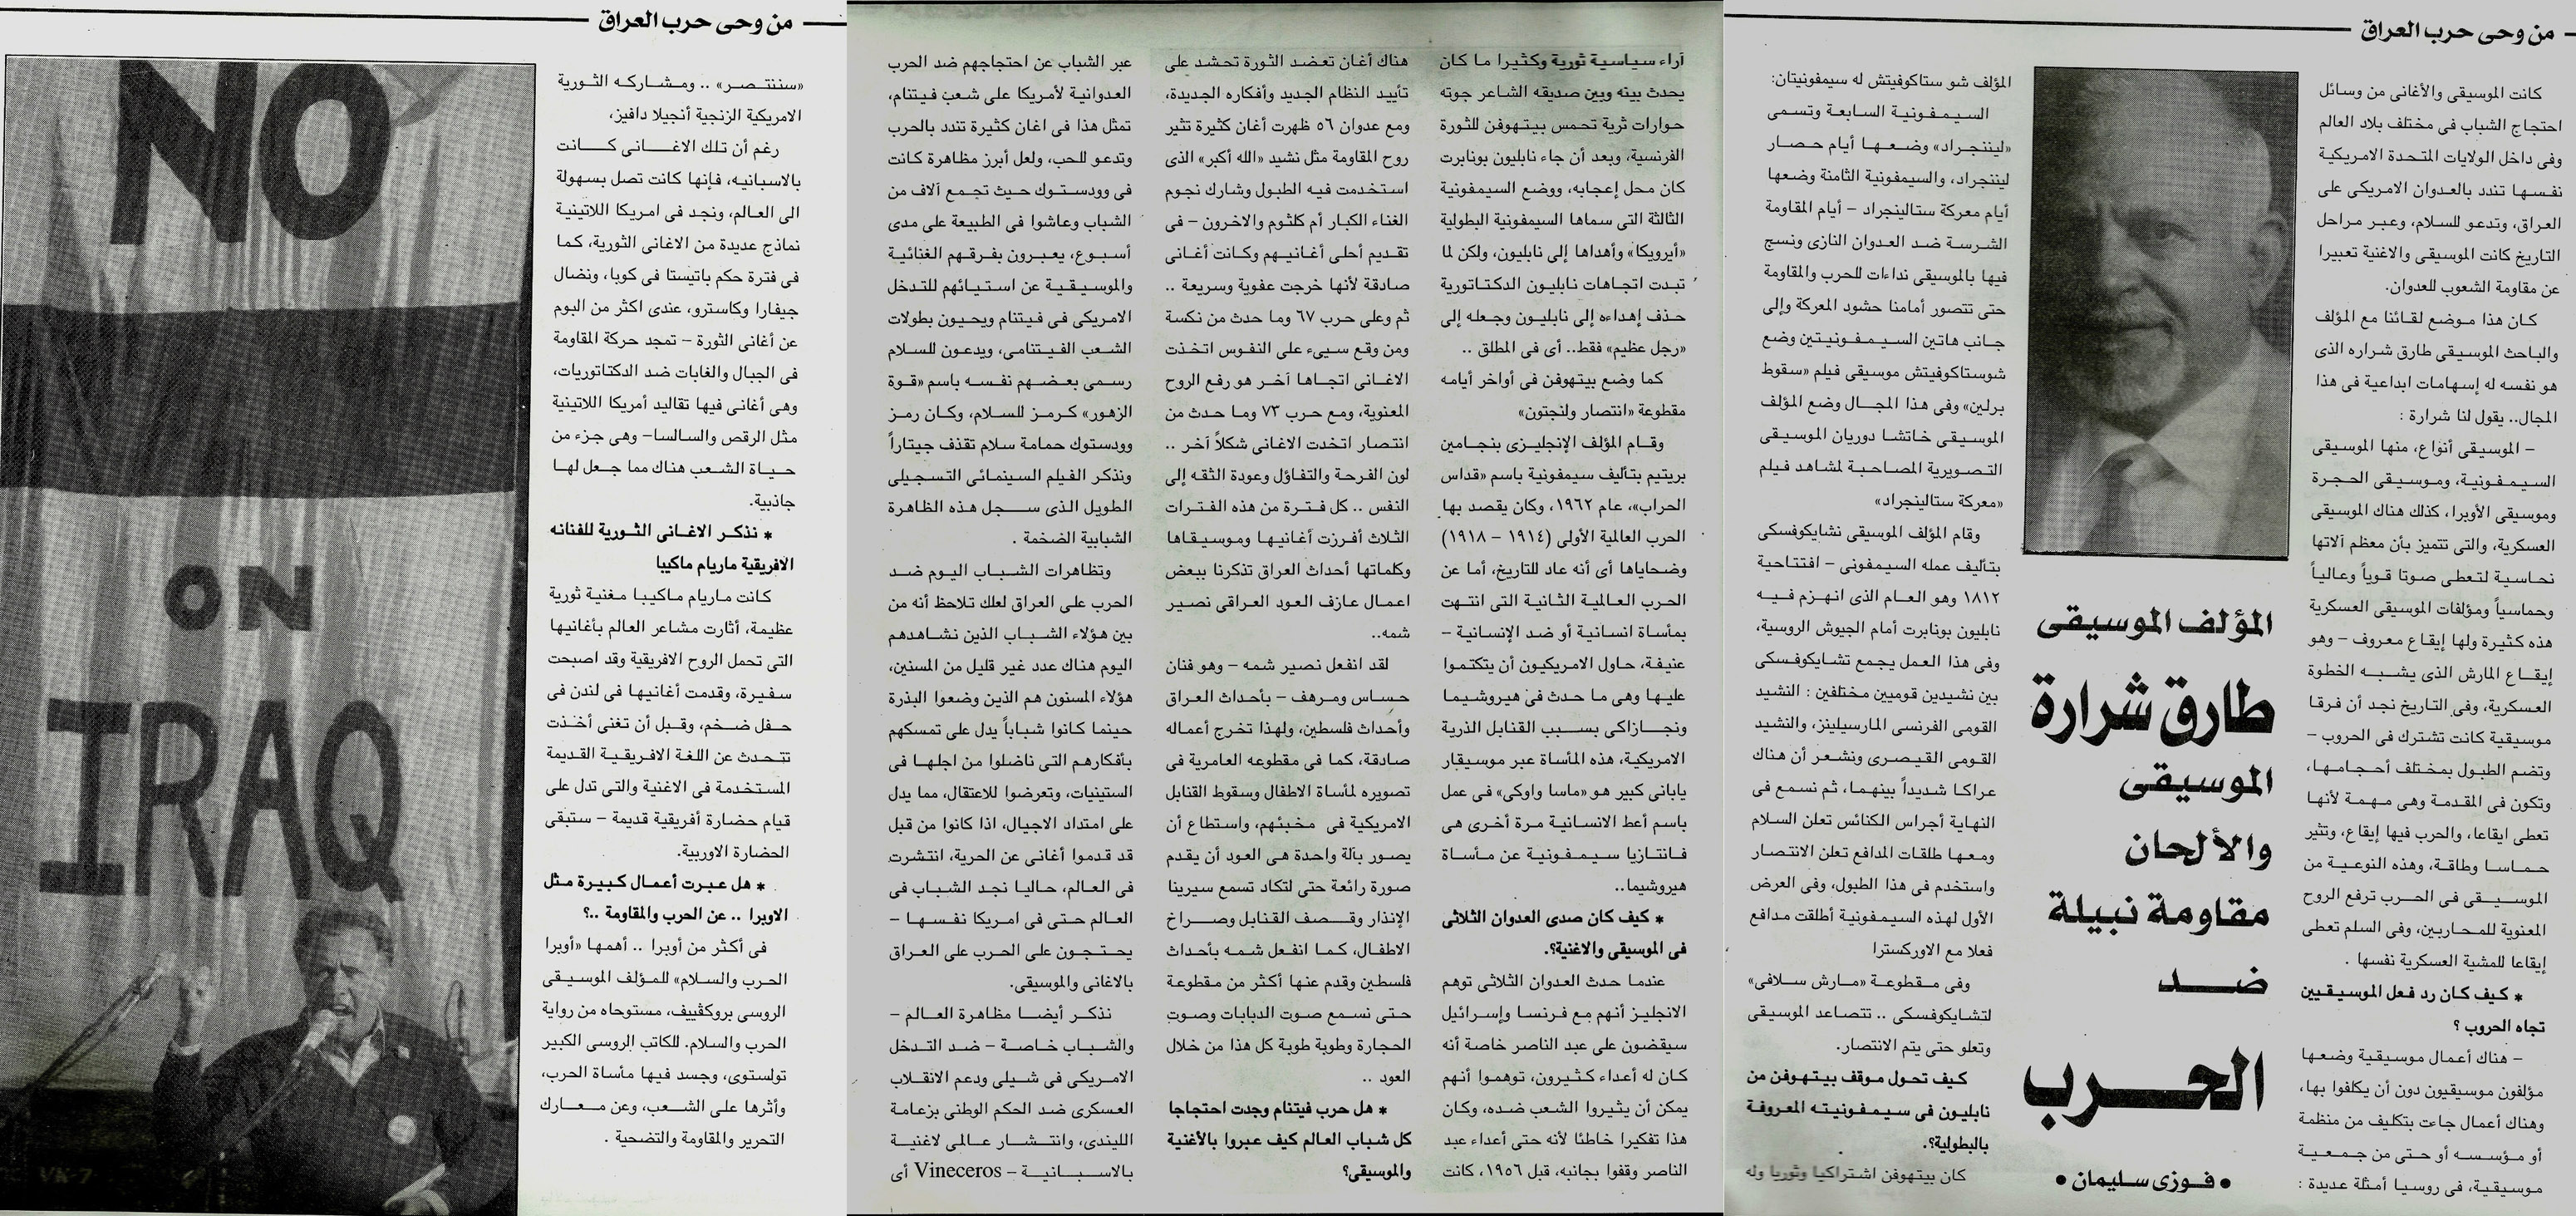 من وحى حرب العراق
كانت الموسيقى والأغانى من وسائل
احتجاج الشباب فى مختلف بلاد العالم
وفى داخل الولايات المتحدة الامريكية
نفسها تندد بالعدوان الامريكى على
العراق، وتدعو للسلام، وعبر مراحل
التاريخ كانت الموسيقى والاغنية تعبيرا
عن مقاومة الشعوب للعدوان.
كان هذا موضع لقائنا مع المؤلف
والباحث الموسيقى طارق شراره الذى
هو نفسه له إسهامات ابداعية فى هذا
المجال.. يقول لنا شرارة :
– الموسيقى أنواع، منها الموسيقى
السيمفونية، وموسيقى الحجرة
وموسيقى الأوبرا، كذلك هناك الموسيقى
العسكرية، والتى تتميز بأن معظم آلاتها
نحاسية لتعطى صوتا قوياً وعالياً
وحماسياً ومؤلفات الموسيقى العسكرية
هذه كثيرة ولها إيقاع معروف – وهو
إيقاع المارش الذى يشبه الخطوة
العسكرية، وفى التاريخ نجد أن فرقا
موسيقية كانت تشترك فى الحروب –
وتضم الطبول بمختلف أحجامها،
وتكون فى المقدمة وهى مهمة لأنها
تعطى ايقاعا، والحرب فيها إيقاع، وتثير
حماسا وطاقة، وهذه النوعية من
الموسيقى فى الحرب ترفع الروح
المعنوية للمحاربين، وفى السلم تعطى
إيقاعا للمشية العسكرية نفسها .
* كيف كان رد فعل الموسيقيين
تجاه الحروب ؟
– هناك أعمال موسيقية وضعها
مؤلفون موسيقيون دون أن يكلفوا بها،
وهناك أعمال جاءت بتكليف من منظمة
أو مؤسسه أو حتى من جمعية
موسيقية، فى روسيا أمثلة عديدة :
المؤلف الموسيقى
طارق شرارة
الموسيقى
والألحان
مقاومة نبيلة
ضد
الحرب
● فوزى سليمان ●
المؤلف شو ستاكوفيتش له سيمفونيتان:
السيمفونية السابعة وتسمى
«ليننجراد» وضعها أيام حصار
ليننجراد، والسيمفونية الثامنة وضعها
أيام معركة ستالينجراد – أيام المقاومة
الشرسة ضد العدوان النازى ونسج
فيها بالموسيقى نداءات للحرب والمقاومة
حتى تتصور أمامنا حشود المعركة وإلى
جانب هاتين السيمفونيتين وضع
شوستاكوفيتش موسيقى فيلم «سقوط
برلين» وفى هذا المجال وضع المؤلف
الموسيقى خاتشا دوريان الموسيقى
التصويرية المصاحبة لمشاهد فيلم
«معركة ستالينجراد»
وقام المؤلف الموسيقى نشايكوفسكى
بتأليف عمله السيمفونى – افتتاحية
١٨١٢ وهو العام الذى انهزم فيه
نابليون بونابرت أمام الجيوش الروسية،
وفى هذا العمل يجمع تشايكوفسكى
بين نشيدين قوميين مختلفين : النشيد
القومى الفرنسى المارسيلينز، والنشيد
القومى القيصرى ونشعر أن هناك
عراكا شديداً بينهما، ثم نسمع فى
النهاية أجراس الكنائس تعلن السلام
ومعها طلقات المدافع تعلن الانتصار
واستخدم فى هذا الطبول، وفى العرض
الأول لهذه السيمفونية أطلقت مدافع
فعلا مع الاوركسترا
وفى مقطوعة «مارش سلافى»
لتشايكوفسكى .. تتصاعد الموسيقى
وتعلو حتى يتم الانتصار.
كيف تحول موقف بيتهوفن من
نابليون فى سيمفونيته المعروفة
بالبطولية؟.
كان بيتهوفن اشتراكيا وثوريا وله
آراء سياسية ثورية وكثيرا ما كان
يحدث بينه وبين صديقه الشاعر جوته
حوارات ثرية تحمس بيتهوفن للثورة
الفرنسية، وبعد أن جاء نابليون بونابرت
كان محل إعجابه، ووضع السيمفونية
الثالثة التى سماها السيمفونية البطولية
«أيرويكا» وأهداها إلى نابليون، ولكن لما
تبدت اتجاهات نابليون الدكتاتورية
حذف إهداءه إلى نابليون وجعله إلى
«رجل عظيم» فقط.. أى فى المطلق ..
كما وضع بيتهوفن فى أواخر أيامه
مقطوعة «انتصار ولنجتون»
وقام المؤلف الإنجليزى بنجامين
بريتيم بتأليف سيمفونية باسم «قداس
الحراب»، عام ١٩٦٢، وكان يقصد بها
الحرب العالمية الأولى (١٩١٤ – ١٩١٨)
وضحاياها أى أنه عاد للتاريخ، أما عن
الحرب العالمية الثانية التى انتهت
بمأساة انسانية أو ضد الإنسانية –
عنيفة، حاول الامريكيون أن يتكتموا
عليها وهى ما حدث فى هيروشيما
ونجازاكى بسبب القنابل الذرية
الامريكية، هذه المأساة عبر موسيقار
يابانى كبير هو «ماسا واوكى» فى عمل
باسم أعط الانسانية مرة أخرى هى
فانتازيا سيمفونية عن مأساة
هيروشيما..
* كيف كان صدى العدوان الثلاثى
فى الموسيقى والاغنية؟.
عندما حدث العدوان الثلاثى توهم
الانجليز أنهم مع فرنسا وإسرائيل
سيقضون على عبد الناصر خاصة أنه
كان له أعداء كثيرون، توهموا أنهم
يمكن أن يثيروا الشعب ضده، وكان
هذا تفكيرا خاطئا لأنه حتى أعداء عبد
الناصر وقفوا بجانبه، قبل ١٩٥٦، كانت
هناك أغان تعضد الثورة تحشد على
تأييد النظام الجديد وأفكاره الجديدة،
ومع عدوان ٥٦ ظهرت أغان كثيرة تثير
روح المقاومة مثل نشيد «الله أكبر» الذى
استخدمت فيه الطبول وشارك نجوم
الغناء الكبار أم كلثوم والاخرون – فى
تقديم أحلى أغانيهم وكانت أغانى
صادقة لأنها خرجت عفوية وسريعة ..
ثم وعلى حرب ٦٧ وما حدث من نكسة
ومن وقع سيىء على النفوس اتخذت
الاغانى اتجاها آخر هو رفع الروح
المعنوية، ومع حرب ٧٣ وما حدث من
انتصار اتخدت الاغانى شكلاً آخر ..
لون الفرحة والتفاؤل وعودة الثقه إلى
النفس .. كل فترة من هذه الفترات
الثلاث أفرزت أغانيها وموسيقاها
وكلماتها أحداث العراق تذكرنا ببعض
اعمال عازف العود العراقى نصير
شمه..
لقد انفعل نصير شمه – وهو فنان
حساس ومرهف – بأحداث العراق
وأحداث فلسطين، ولهذا تخرج أعماله
صادقة، كما فى مقطوعه العامرية فى
تصويره لمأساة الاطفال وسقوط القنابل
الامريكية فى مخبئهم، واستطاع أن
يصور بآلة واحدة هى العود أن يقدم
صورة رائعة حتى لتكاد تسمع سيرينا
الإنذار وقصف القنابل وصراخ
الاطفال، كما انفعل شمه بأحداث
فلسطين وقدم عنها أكثر من مقطوعة
حتى نسمع صوت الدبابات وصوت
الحجارة وطوبة طوبة كل هذا من خلال
العود ..
* هل حرب فيتنام وجدت احتجاجا
كل شباب العالم كيف عبروا بالأغنية
والموسيقى؟
عبر الشباب عن احتجاجهم ضد الحرب
العدوانية لأمريكا على شعب فيتنام،
تمثل هذا فى اغان كثيرة تندد بالحرب
وتدعو للحب، ولعل أبرز مظاهرة كانت
فى وودستوك حيث تجمع آلاف من
الشباب وعاشوا فى الطبيعة على مدى
أسبوع، يعبرون بفرقهم الغنائية
والموسيقية عن استيائهم للتدخل
الامريكى فى فيتنام ويحيون بطولات
الشعب الفيتنامى، ويدعون للسلام
رسمى بعضهم نفسه باسم «قوة
الزهور» كرمز للسلام، وكان رمز
وودستوك حمامة سلام تقذف جيتاراً
ونذكر الفيلم السينمائى التسجيلى
الطويل الذى سجل هذه الظاهرة
الشبابية الضخمة .
وتظاهرات الشباب اليوم ضد
الحرب على العراق لعلك تلاحظ أنه من
بين هؤلاء الشباب الذين نشاهدهم
اليوم هناك عدد غير قليل من المسنين،
هؤلاء المسنون هم الذين وضعوا البذرة
حينما كانوا شباباً يدل على تمسكهم
بأفكارهم التى ناضلوا من اجلها فى
الستينيات، وتعرضوا للاعتقال، مما يدل
على امتداد الاجيال، اذا كانوا من قبل
قد قدموا أغانى عن الحرية، انتشرت
فى العالم، حاليا نجد الشباب فى
العالم حتى فى امريكا نفسها –
يحتجون على الحرب على العراق
بالاغانى والموسيقى.
نذكر أيضا مظاهرة العالم –
والشباب خاصة – ضد التدخل
الامريكى فى شيلى ودعم الانقلاب
العسكرى ضد الحكم الوطنى بزعامة
الليندى، وانتشار عالمى لاغنية
بالاسبانية – Vineceros أى
من وحى حرب العراق
«سننتصر» .. ومشاركه الثورية
الامريكية الزنجية أنجيلا دافيز،
رغم أن تلك الاغانى كانت
بالاسبانيه، فإنها كانت تصل بسهولة
الى العالم، ونجد فى امريكا اللاتينية
نماذج عديدة من الاغانى الثورية، كما
فى فترة حكم باتيستا فى كوبا، ونضال
جيفارا وكاسترو، عندى اكثر من البوم
عن أغانى الثورة – تمجد حركة المقاومة
فى الجبال والغابات ضد الدكتاتوريات،
وهى أغانى فيها تقاليد أمريكا اللاتينية
مثل الرقص والسالسا– وهى جزء من
حياة الشعب هناك مما جعل لها
جاذبية.
* نذكر الاغانى الثورية للفنانه
الافريقية ماريام ماكيبا
كانت ماريام ماكيبا مغنية ثورية
عظيمة، أثارت مشاعر العالم بأغانيها
التى تحمل الروح الافريقية وقد اصبحت
سفيرة، وقدمت أغانيها فى لندن فى
حفل ضخم، وقبل أن تغنى أخذت
تتحدث عن اللغة الافريقية القديمة
المستخدمة فى الاغنية والتى تدل على
قيام حضارة أفريقية قديمة – ستبقى
الحضارة الاوربية.
* هل عبرت أعمال كبيرة مثل
الاوبرا .. عن الحرب والمقاومة ..؟
فى أكثر من أوبرا .. أهمها «أوبرا
الحرب والسلام» للمؤلف الموسيقى
الروسى بروكڤييف، مستوحاه من رواية
الحرب والسلام. للكاتب الروسى الكبير
تولستوى، وجسد فيها مأساة الحرب،
وأثرها على الشعب، وعن معارك
التحرير والمقاومة والتضحية .
NO
ON
IRAQ